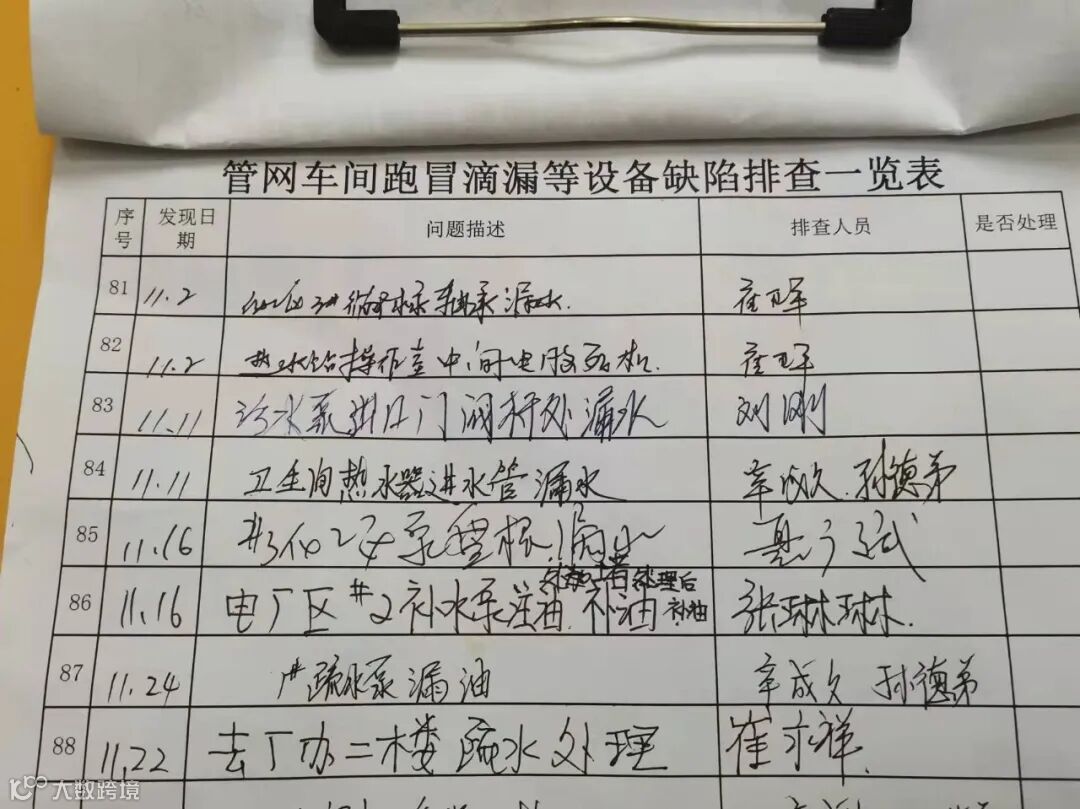 管网车间跑冒滴漏等设备缺陷排查一览表
序号 发现日期 问题描述 排查人员 是否处理
81 11.2 循环水泵轴承漏水. 崔卫军
82 11.2 热水站操作室中间电脑死机. 崔卫军
83 11.11 污水泵进口门阀杆处漏水 刘刚
84 11.11 卫生间热水器进水管漏水 辛成久.孙德弟
85 11.16 #3
处理后
86 11.16 电厂区#2补水泵注油.补油 补油 张琳琳.
87 11.24 1#疏水泵漏油 辛成久 孙德弟
88 11.22 去厂办二楼疏水处理 崔才祥.
大数跨境